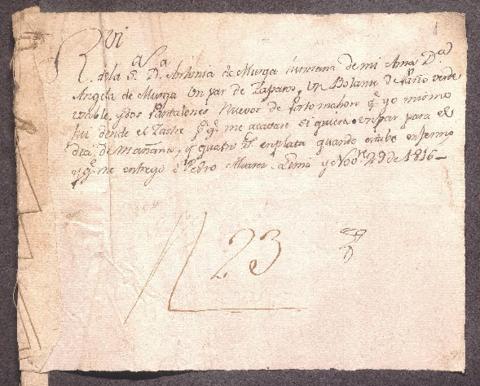 Rvi
de la S.ª D.ª Antonia de Murga hermana de mi Ama D.ª
Angela de Murga Un par de Zapatos, Un Bolante de paño verde
y dos Pantalones Nuevos de q.e yo mismo
fui donde el Sastre p.a q.e me acavase si quiera un par para el
dia de Mañana, y quatro en plata quando estube enfermo
y q.e me entregó D.n Pedro Alvares Lima y Nov.e 29 de 1816
23